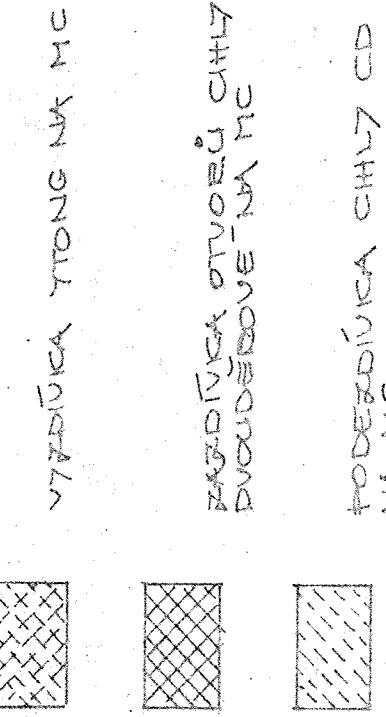 VYZDÍVKA YTONG NA MC
ZAZDÍVKA OTVORŮ CIHLY
DVOUDĚROVÉ NA MC
PODEZDÍVKA CIHLY CD
NA MC